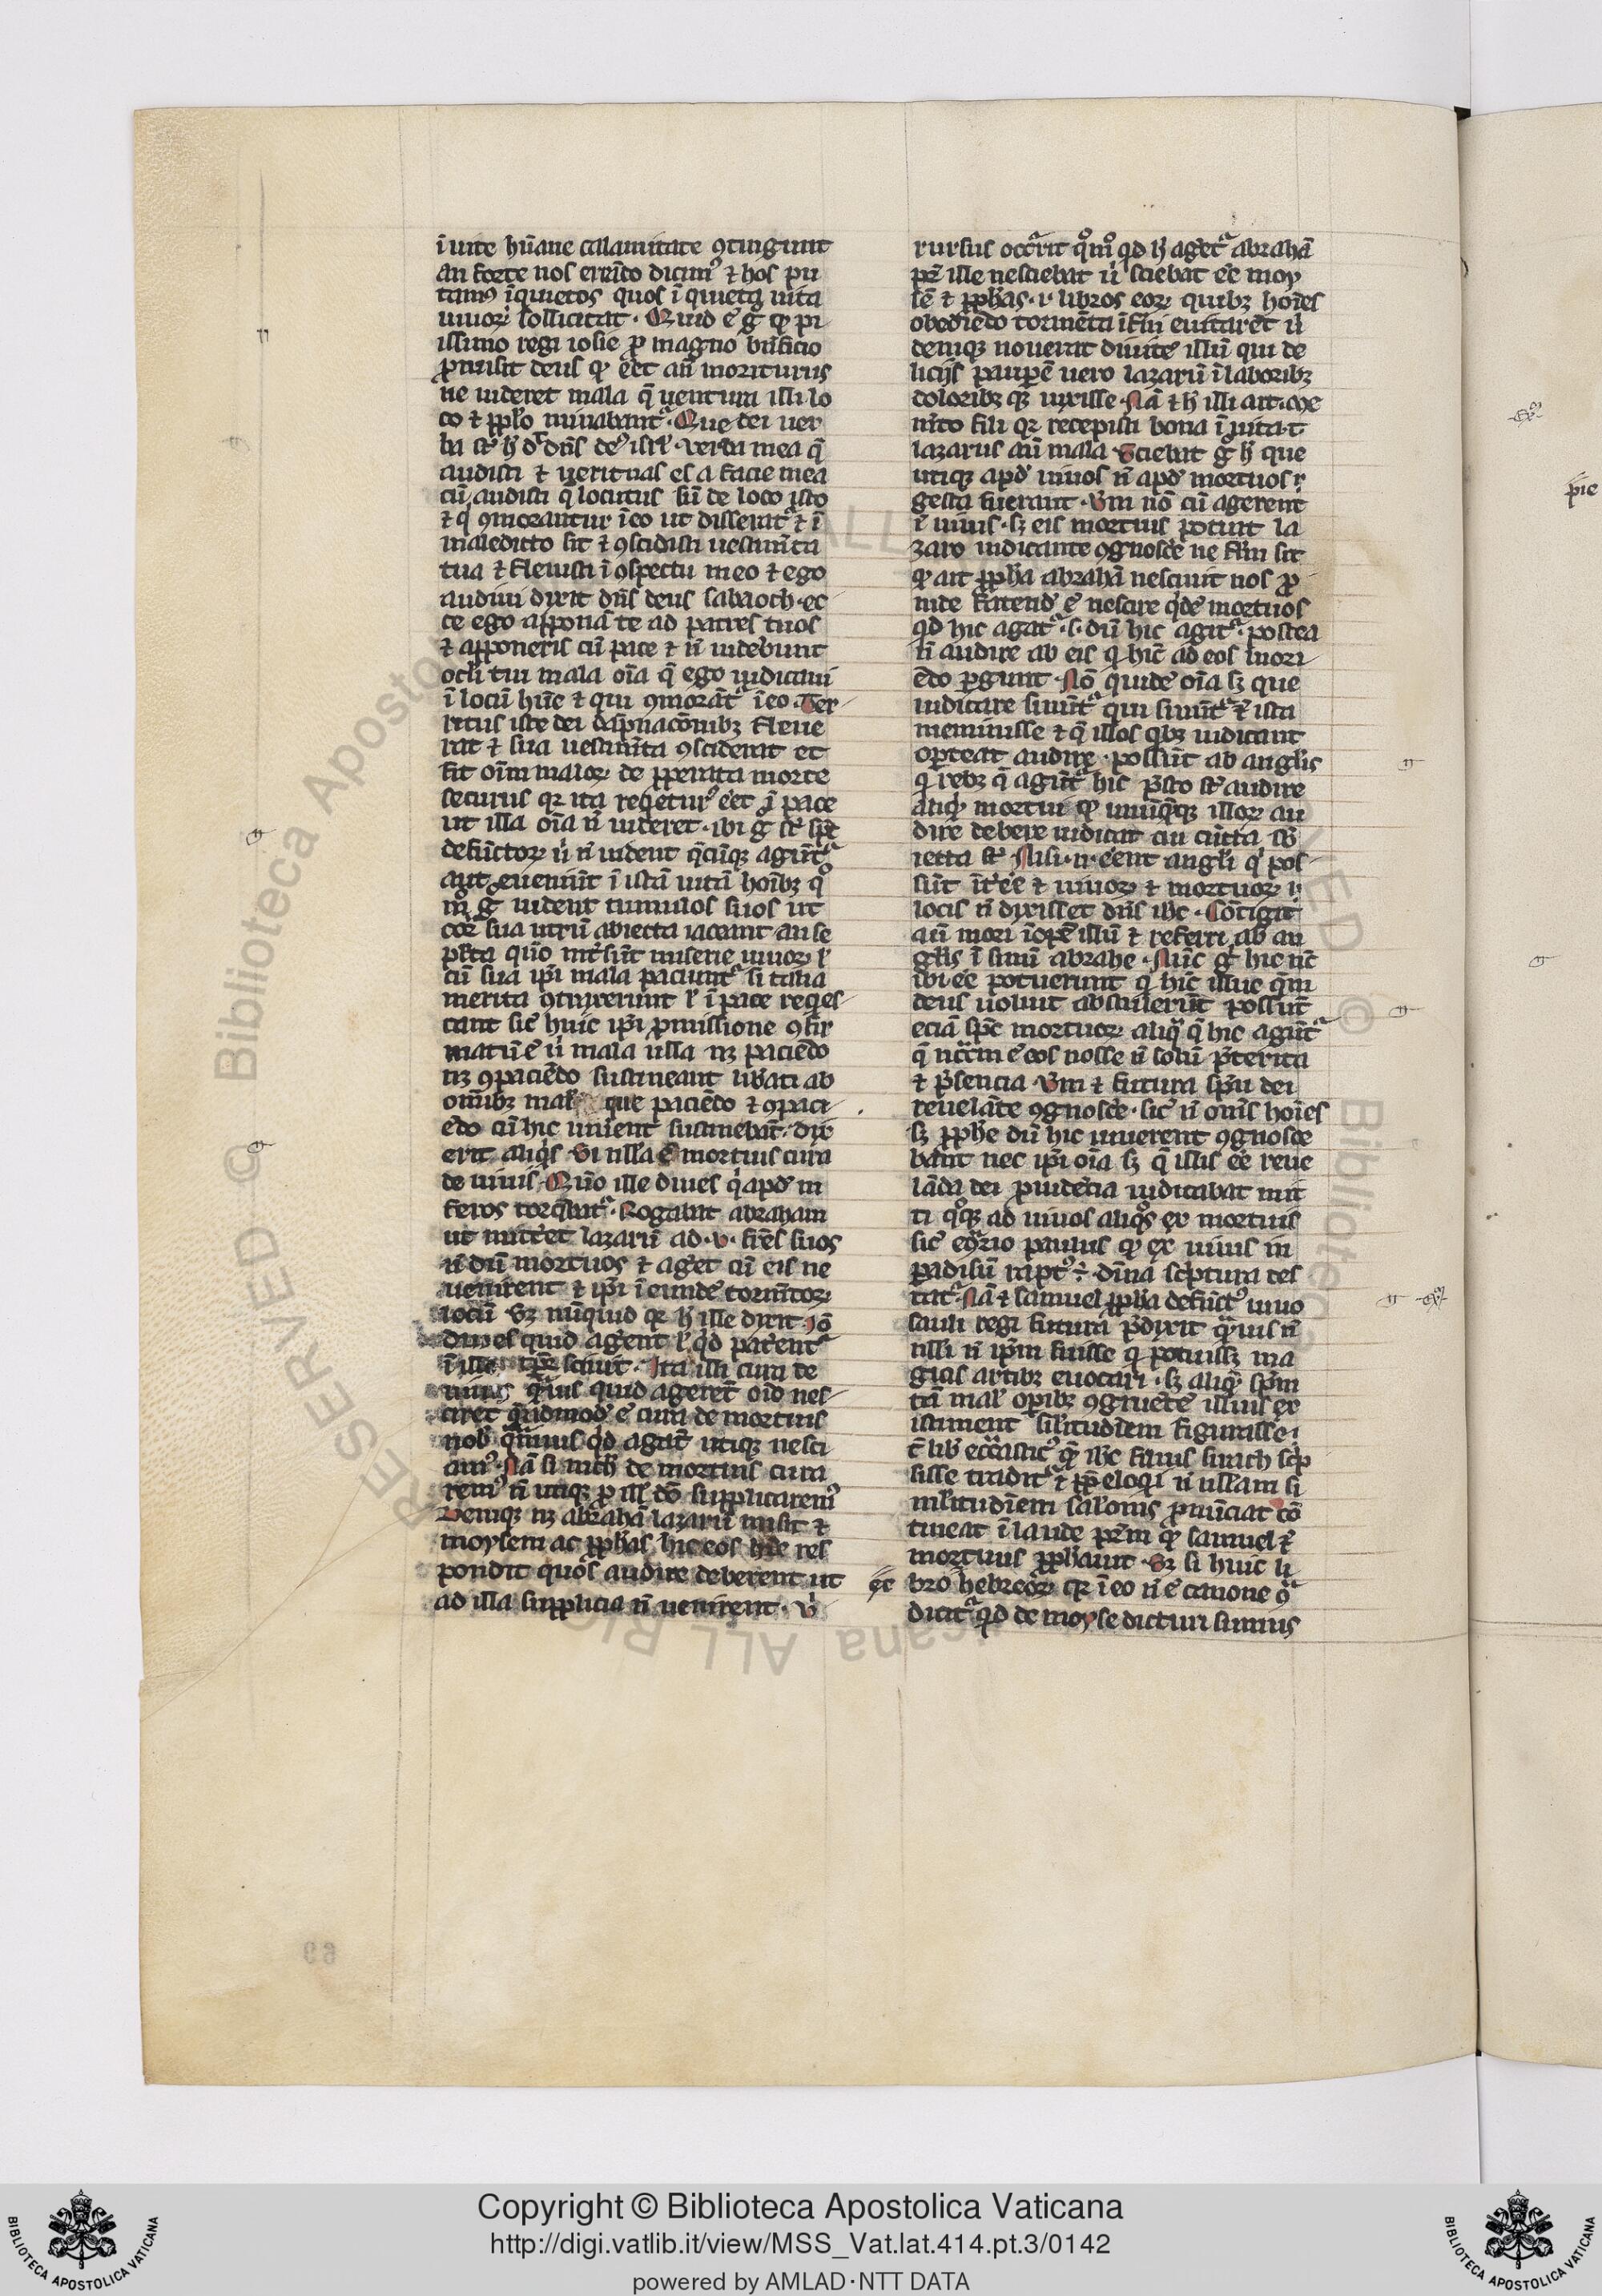 ī uite hūane calamitate ꝯtingunt
an forte nos errādo dicimꝰ ⁊ hos pu
tamꝰ īquietos quos ī quieta uita
uiuoꝝ sollicitat. Quid ē g̃ ꝙ pi
issimo regi iosie ꝓ magno bn̄ficio
ꝓmisit deus ꝙ eēt an̄ moriturus
ne uideret mala q̄ uentura illi lo
co ⁊ ppl̓o minabant᷑. Que dei uer
ba st̄ h̓ dc̄ dn̄s deꝰ isrl̓. Verba mea q̄
audisti ⁊ ueritus es a facie mea
cū audisti q̄ locutus sū de loco isto
⁊ q̓ ꝯmorantur ī eo ut disserat᷑ ⁊ ī
maledicto sit ⁊ ꝯscidisti uestim̄ta
tua ⁊ fleuisti ī ꝯspectu meo ⁊ ego
audiui dixit dn̄s deus sabaoth. ec
ce ego apponā te ad patres tuos
⁊ apponeris cū pace ⁊ n̄ uidebunt
ocl̓i tui mala oīa q̄ ego īudicaui
ī locū hūc ⁊ qui ꝯmorāt᷑ ī eo. Ter
ritus iste dei ꝯmīnacōnibꝫ fleue
rat ⁊ sua uestim̄ta ꝯsciderat et
fit oīm maloꝝ de ꝓperata morte
securus qr ita reqetur᷑ eēt ī pace
ut illa oīa n̄ uideret. ibi g̃ st̄ sp̄c
defūctoꝝ u̓ n̄ uident q̄cūqꝫ agūt᷑
aut eueniūt ī istā uitā hoībꝫ qͦ
mͦ g̃ uident tumulos suos ut
corꝑa sua utrū abiecta iaceant an se
pl̓ta quō int̓sūt miserie uiuoꝝ l̓
cū sua ip̄i mala paciunt᷑ si talia
merita ꝯtraxerunt l̓ ī pace reqes
cant sic̄ huic ip̄i ꝓmissione ꝯfir
matū ē u̓ mala ulla nꝫ paciēdo
nꝫ ꝯpaciēdo sustineant lib̓ati ab
omibꝫ mal̓ que paciēdo ⁊ ꝯpaci
ēdo cū hic uiuerent sustinebāt. dix̓
erit aliqͥs Si nl̓la ē mortuis cura
de uiuis. Quō ille diues qͥ apd̓ in
feros torq̄bat᷑. Rogabat abraham
ut mitt̓et lazarū ad .v. fr̄es suos
n̄ dū mortuos ⁊ aget cū eis ne
uenirent ⁊ ip̄i ī eundē torm̄toꝝ
locū Sꝫ nūquid qr h̓ ille dixit iō
diues quid agent l̓ qͥd patent᷑
ī illo tp̄r̄ sciuit. Ita illi cura de
uiuis q̄uis quid agerēt oīo nes
ciret q̄ndmod̓ ē cura de mortuis
nob̓ q̄muis qͥd agāt utiqꝫ nesci
amꝰ. Nā si nich̓ de mortuis cura
remꝰ n̄ utiqꝫ ꝓ ill̓ dō supplicaremꝰ
Deniqꝫ nꝫ abrahā lazarū misit ⁊
moysem ac ꝓph̓as hic eos hr̄e res
pondit quos audire deberent ut
ad illa supplicia n̄ uenirent. u̓
rursus occ̓rit qͦmͦ qd h̓ aget᷑ abrahā
pr̄ ille nesciebat u̓ sciebat eē moy
sē ⁊ ꝓph̓as. ⁊ libros eoꝝ quibꝫ hoīes
obediēdo tormēta īf̓ni euitarēt u̓
deniqꝫ nouerat diuitē illū qui de
licijs pauꝑē uero lazarū ī laboribꝫ
doloribꝫ qꝫ uixisse. Nā ⁊ h̓ illi ait. Me
m̄to fili qr recepisti bona ī uita. t
lazarus aū mala. Sciebat g̃ h̓ que
utiqꝫ apd̓ uiuos n̄ apd̓ mortuos
gesta fuerant. Vm̄ nō cū agerent
ī uiuis. sꝫ eis mortuis potuit la
zaro iudicante ꝯgnosc̓e ne fl̓m sit
ꝙ ait ꝓph̓a abrahā nesciuit nos ꝓ
inde fatend̓ ē nescire qͥdē mortuos
qd hic agat᷑. s. dū hic agit᷑. postea
n̄ audire ab eis q̄ hīc ad eos mori
ēdo ꝑgunt. Nō quidē oīa sꝫ que
indicare sinūt᷑ qui sinūt᷑ ⁊ ista
meminisse ⁊ q̄ illos qͥbꝫ iudicant
oporteat audire. possūt ab angl̓is
q̓ rebꝫ q̄ agūt᷑ hic p̄sto st̄ audire
aliqͥd mortui ꝙ unūqͥqꝫ illoꝝ au
dire debere iudicat cui cūcta sb̄
iecta st̄. Nisi. n. eēnt angl̓i q̓ pos
sūt īt̓eē ⁊ uiuoꝝ ⁊ mortuoꝝ
locis n̄ dixisset dn̄s ih̓c. Cōtigit
aū mori īopē illū ⁊ referri ab an
gl̓is ī sinū abrahe. Nūc g̃ hic nc̄
ibi eē potuerunt q̓ hīc illuc qm̄
deus uoluit abstulerūt possūt
eciā sp̄c mortuoꝝ aliqͣ q̄ hic agūt᷑
q̄ nccm̄ ē eos nosse n̄ solū p̄terita
⁊ p̄sencia Vm̄ ⁊ futura sp̄u dei
reuelāte ꝯgnosc̓e. sic̄ n̄ om̄s hoīes
sꝫ ꝓph̓e dū hic uiuerent ꝯgnosce
bant nec ip̄i oīa sꝫ q̄ illis eē reue
lāda dei ꝓuidēcia iudicabat mit
ti qͦqꝫ ad uiuos aliqͦs ex mortuis
sic̄ eꝯ̓rio paulus ꝙ ex uiuis in
ꝑadisū raptꝰ. diuīa sc̓ptura tes
tat᷑. Nā ⁊ samuel ꝓph̓a defūctꝰ uiuo
sauli regi futura p̄dixit q̄uis n̄
nlli n̄ ip̄m fuisse q̓ potuissꝫ ma
gicis artibꝫ euocari. sꝫ aliqͥ sp̄m
tā mal̓ opibꝫ ꝯgruētē illius ex
istiment᷑ sil̓itudīem figurasse.
c̄ lib̓ ecc̄iasticꝰ q̄ ih̓c filius sirach sc̓p
sisse tradit᷑ ⁊ ꝓꝑ eloqͥ n̄ ullam si
mil̓itudīem salōnis ꝓnūciat᷑ cō
tineat ī laude pr̄m ꝙ samuel ⁊
mortuus ꝓph̓auit. Sꝫ si huic li
ec bro hebreoꝝ qr ī eo n̄ ē canone ꝯ̓
dicit᷑ qͥd de moyse dicturi sumus
69
pie
Copyright © Biblioteca Apostolica Vaticana
http://digi.vatlib.it/view/MSS_Vat.lat.414.pt.3/0142
powered by AMLAD·NTT DATA